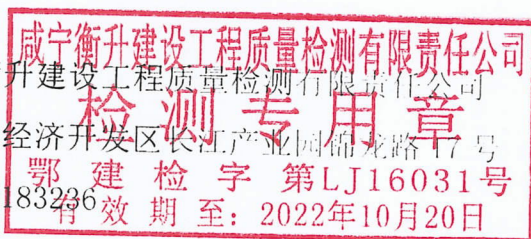 咸宁衡升建设工程质量检测有限责任公司
升建设工程质量检测有限责任公司
检测专用章
经济开发区长江产业园锦龙路17号
鄂建检字 第LJ16031号
183236
有效期至：2022年10月20日